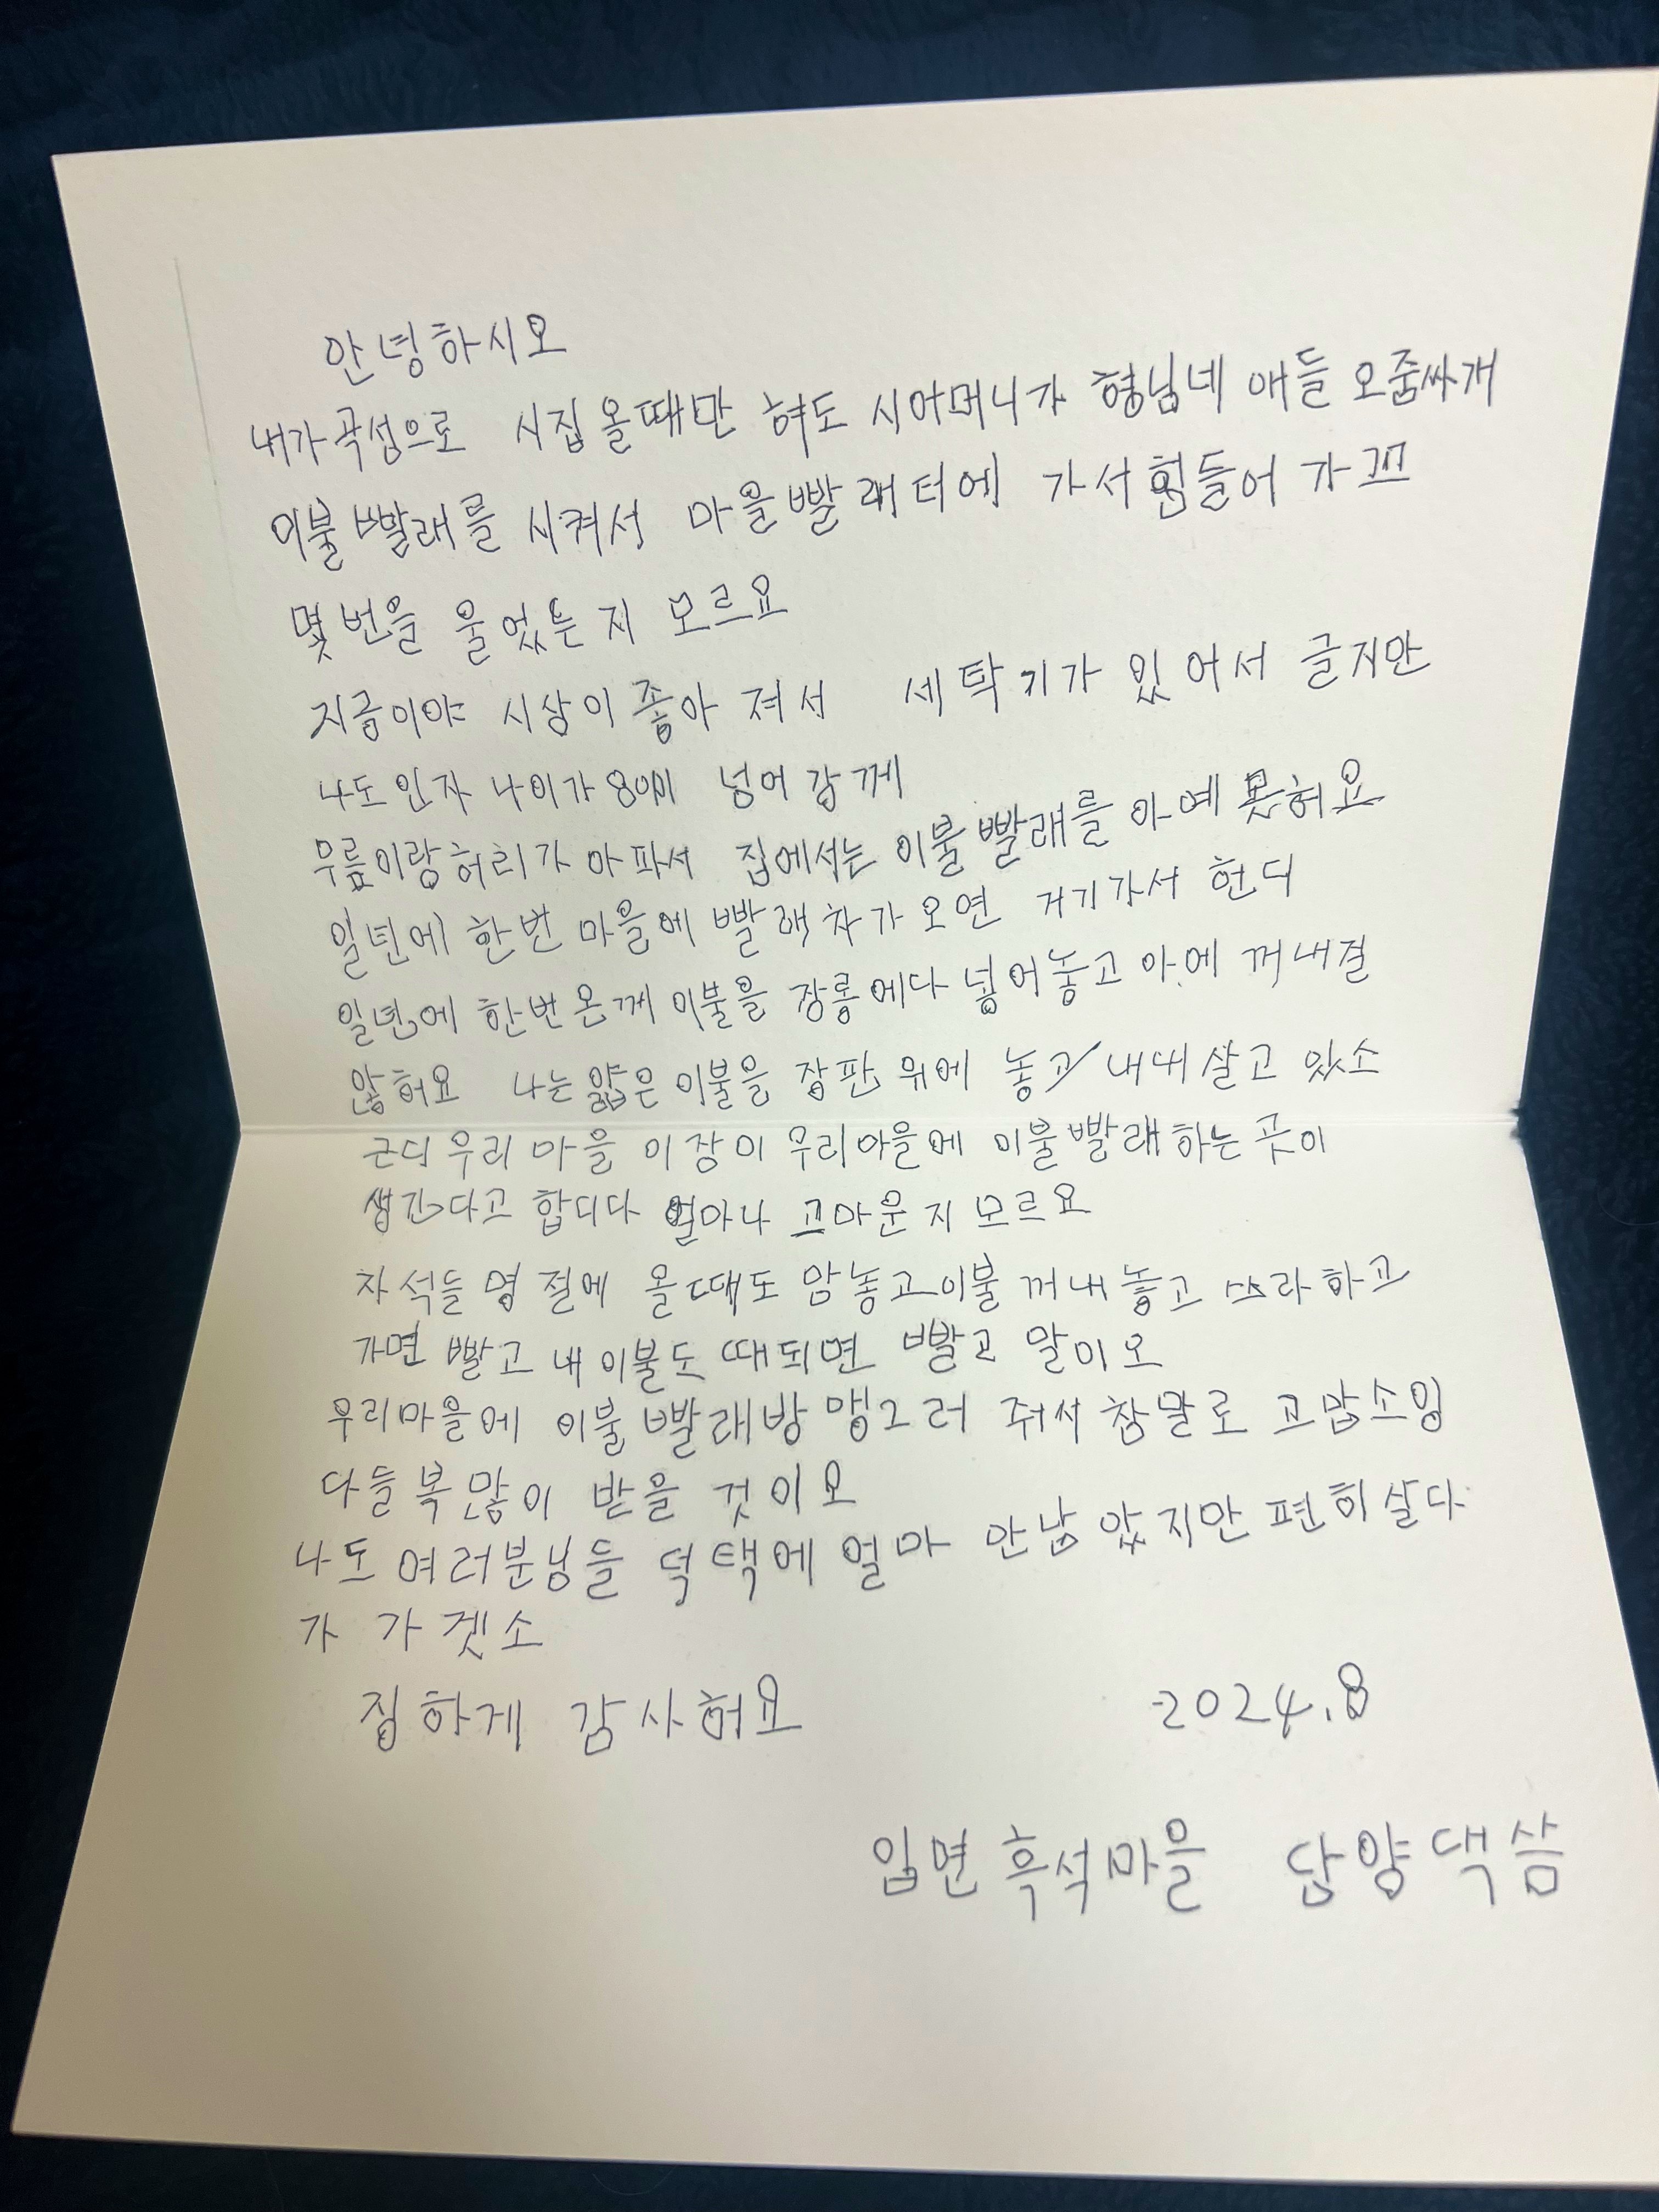 안녕하시오
내가 곡성으로 시집 올때만 혀도 시어머니가 형님네 애들 오줌싸개
이불 빨래를 시켜서 마을 빨래터에 가서 힘들어 가꼬
몇번을 울었는지 모르요
지금이야 시상이 좋아 져서 세탁기가 있어서 글지만
나도 인자 나이가 80이 넘어 강께
무릎이랑 허리가 아파서 집에서는 이불 빨래를 아예 못허요
일년에 한번 마을에 빨래차가 오면 거기가서 헌디
일년에 한번 온께 이불을 장롱에다 넣어놓고 아에 꺼내질
않허요 나는 얇은 이불을 장판 위에 놓고 내내 살고 있소
근디 우리 마을 이장이 우리마을에 이불빨래 하는 곳이
생긴다고 합디다 얼마나 고마운지 모르요
자석들 명절에 올때도 맘놓고 이불 꺼내 놓고 쓰라 하고
가면 빨고 내 이불도 때되면 빨고 말이오
우리마을에 이불 빨래방 맹그러 줘서 참말로 고맙소잉
다들 복 많이 받을 것이오
나도 여러분님들 덕택에 얼마 안남았지만 편히 살다
가 가겟소
징하게 감사허요 2024.8
입면 흑석마을 담양댁 씀